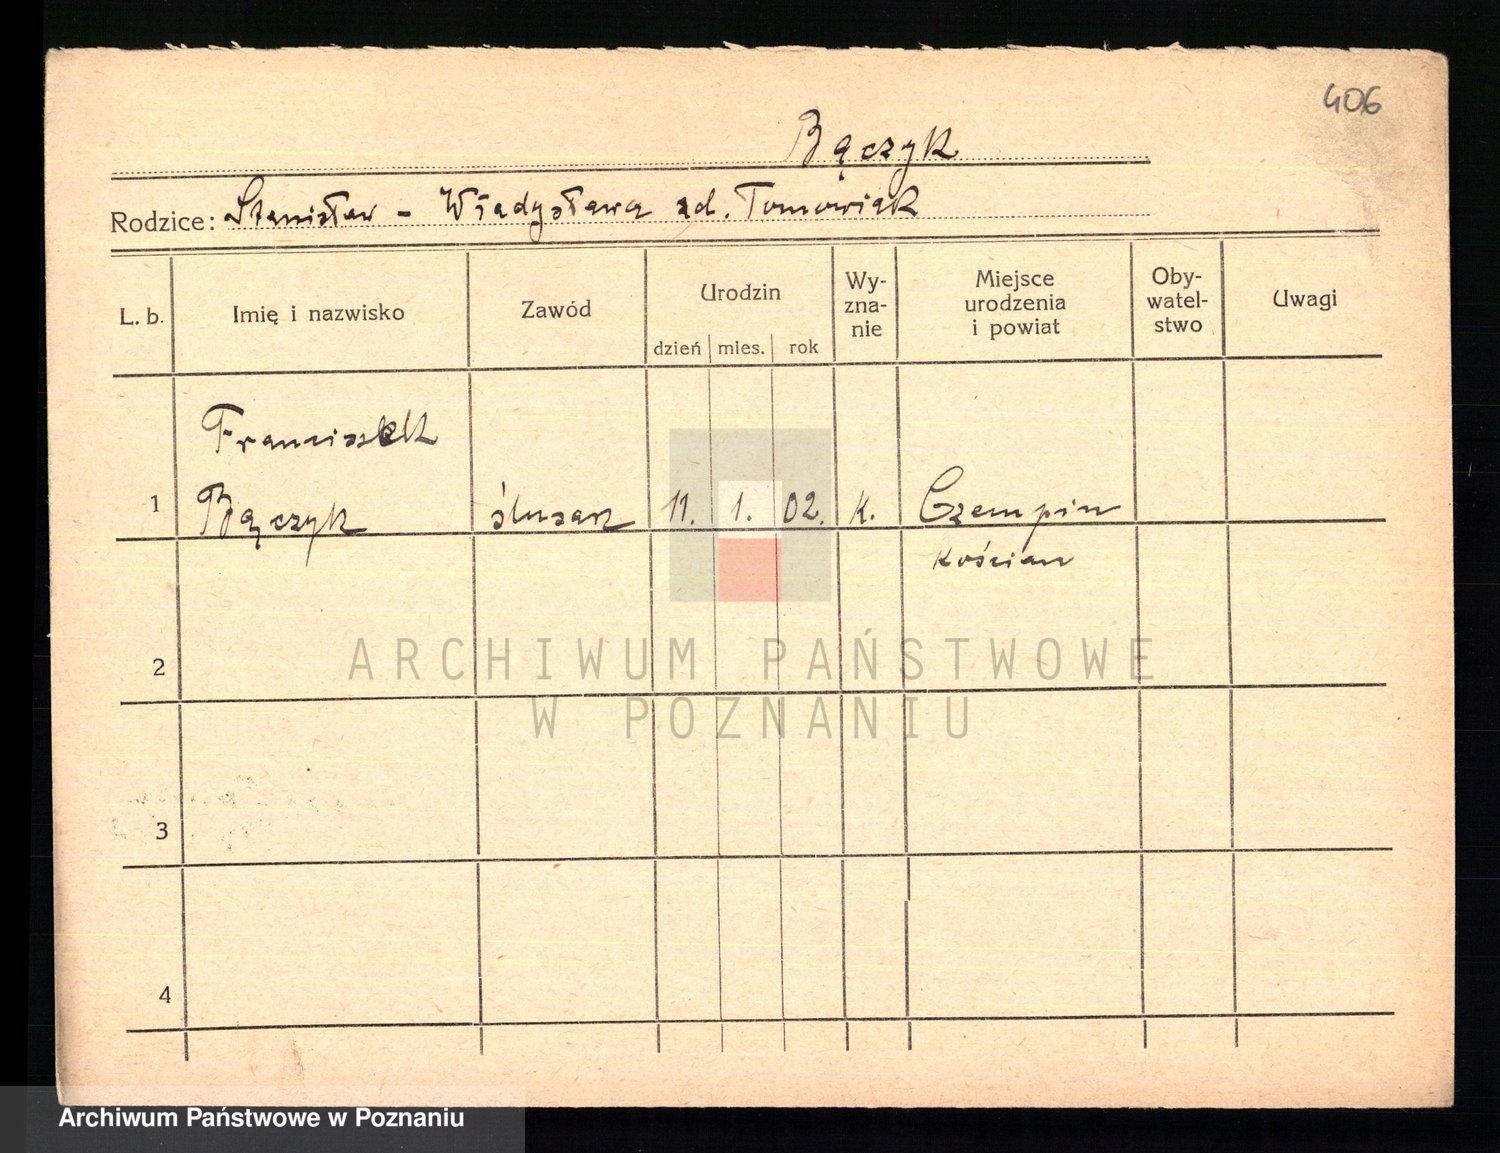 406
Bączyk
Rodzice: Stanisław - Władysława zd. Tomowiak
L. b. Imię i nazwisko Zawód Urodzin Wy-zna-nie Miejsce urodzenia i powiat Oby-watel-stwo Uwagi
dzień mies. rok
Franciszek
1 Bączyk ślusarz 11. 1. 02. K. Czempin
Kościan
2
ARCHIWUM PAŃSTWOWE
W POZNANIU
3
4
Archiwum Państwowe w Poznaniu